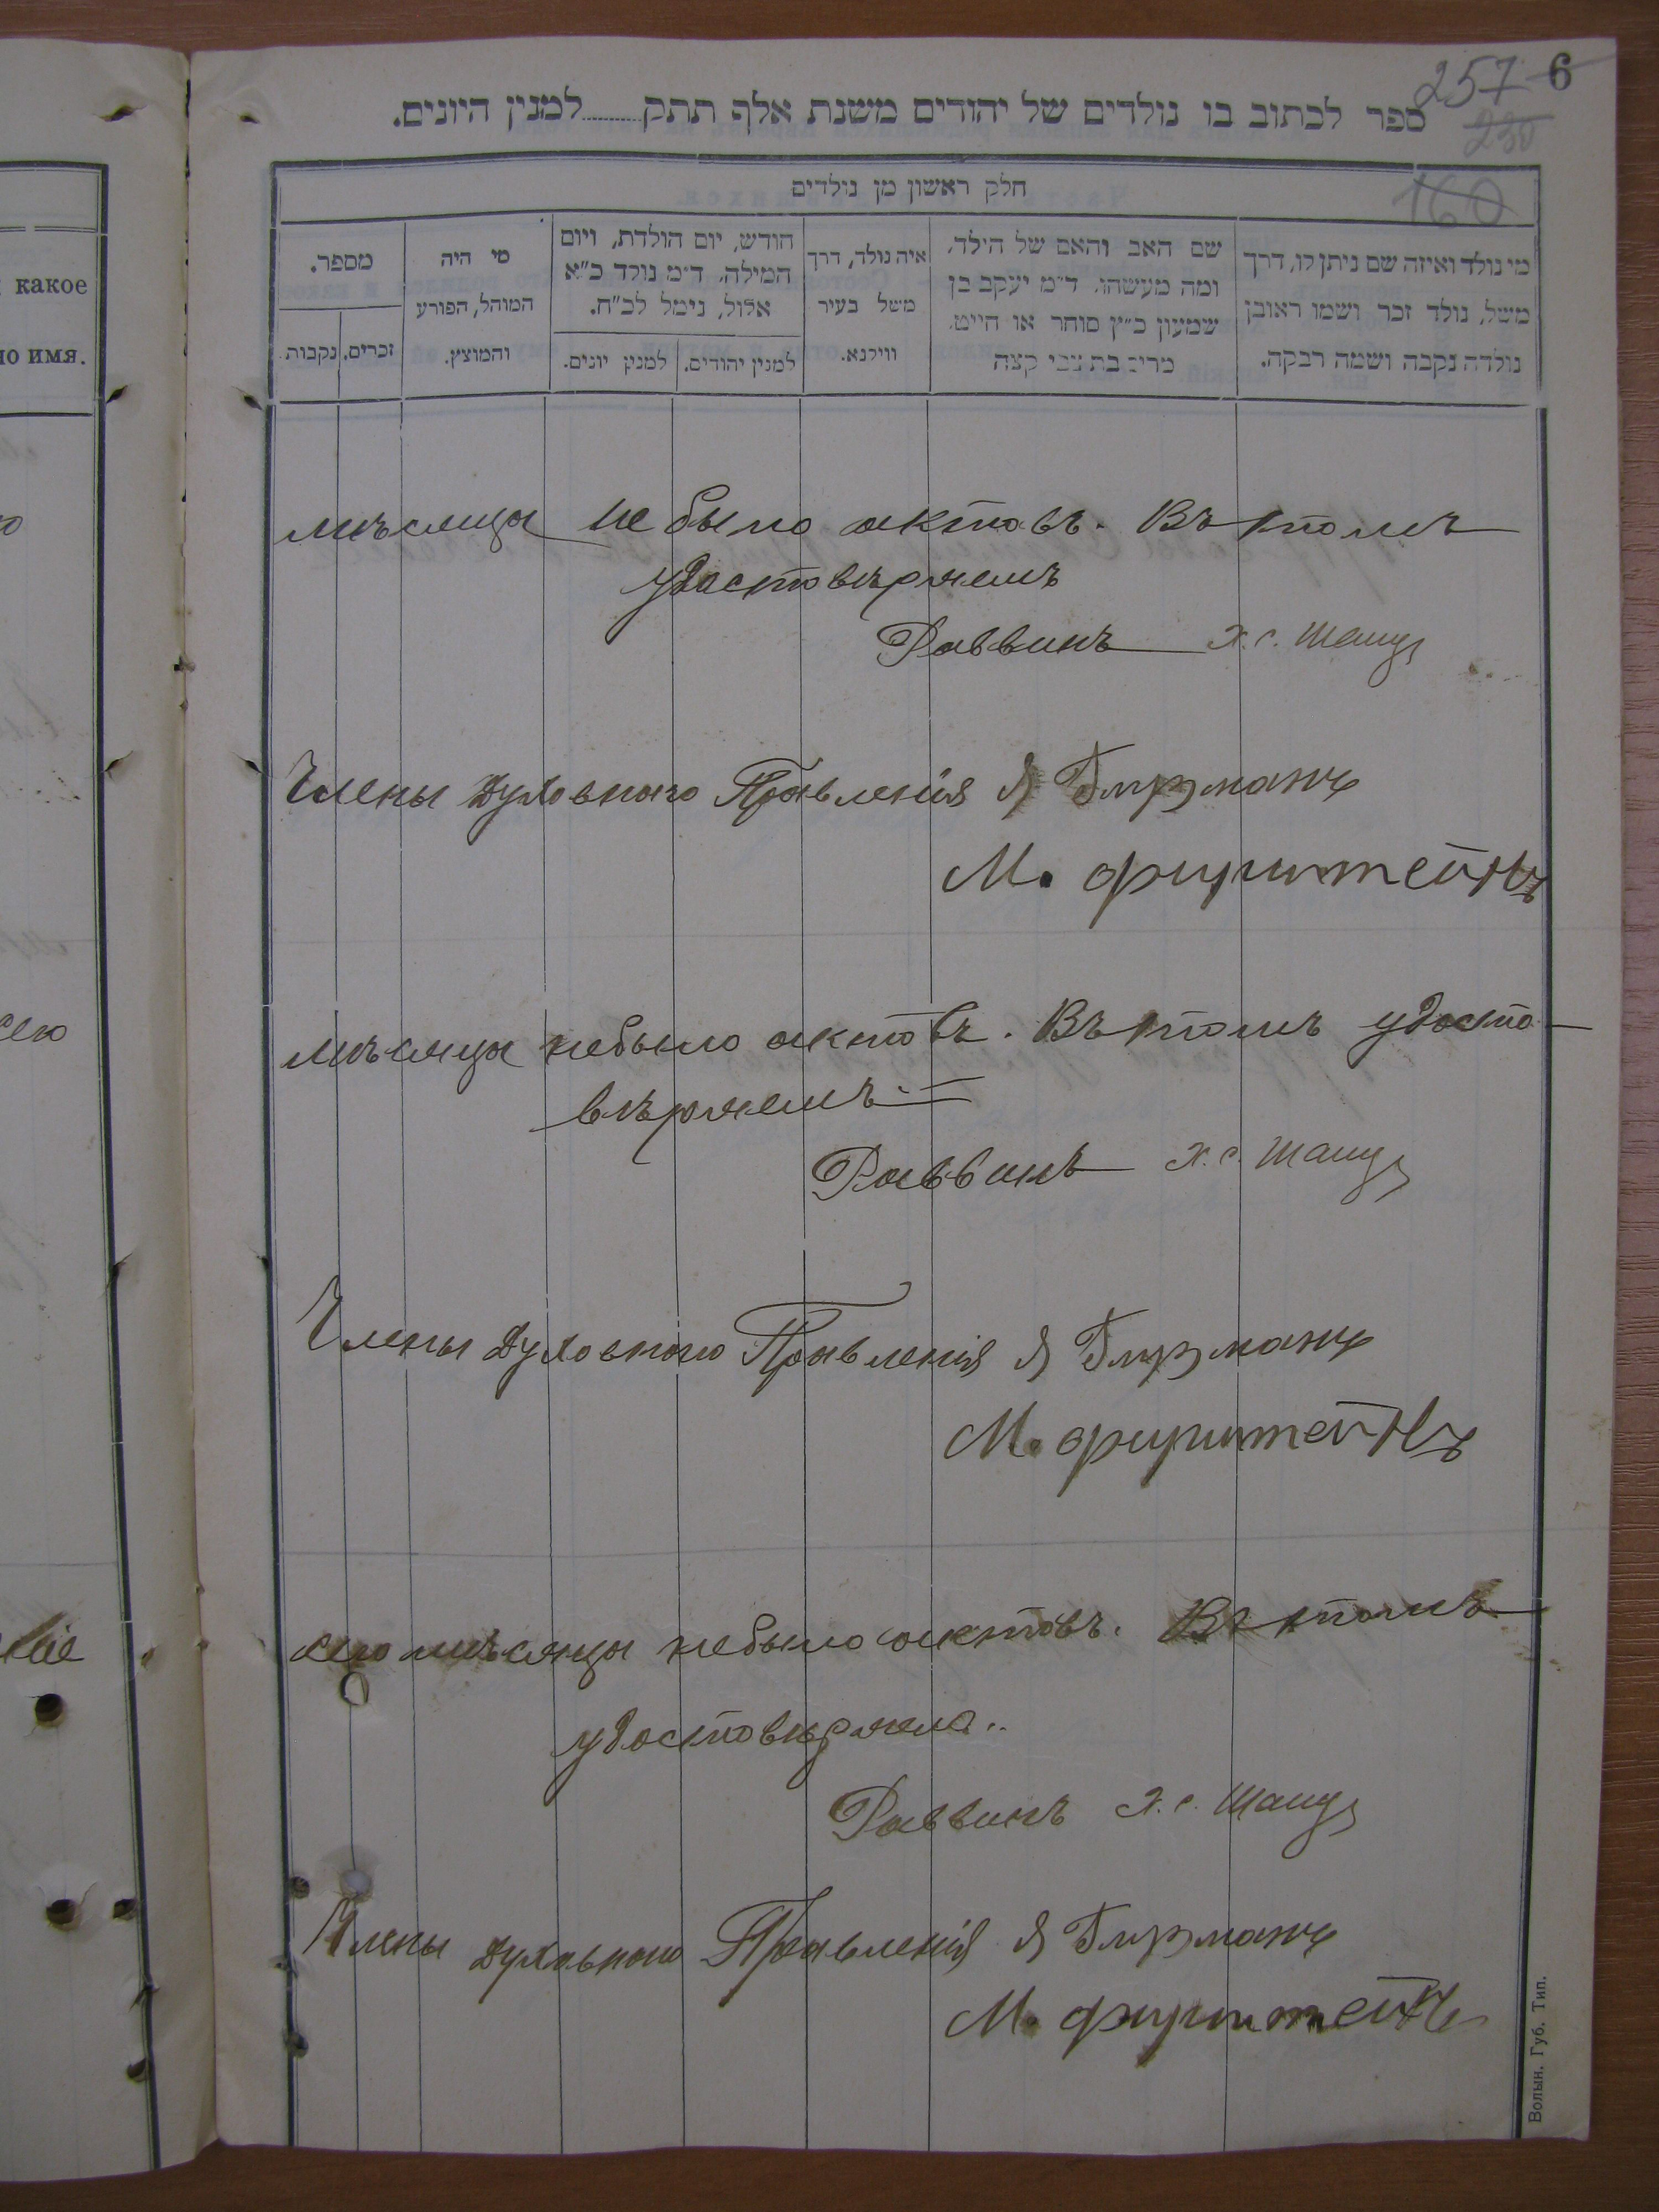 257 6
230
160
ספר לכתוב בו נולדים של יהודים משנת אלף תתק........למנין היונים.
חלק ראשון מן נולדים
מי נולד ואיזה שם ניתן לו, דרך
משל, נולד זכר ושמו ראובן
נולדה נקבה ושמה רבקה.
שם האב והאם של הילד,
ומה מעשהו. ד״מ יעקב בן
שמעון כ״ץ סוחר או חייט.
מרים בת צבי קצה
איה נולד, דרך
משל בעיר
ווילנא.
חודש, יום הולדת, ויום
המילה. ד״מ נולד כ״א
אלול, נימל לכ״ח.
למנין יהודים.
למנין יונים.
מי היה
המוהל, הפורע
והמוצץ.
מספר.
זכרים.
נקבות.
какое
но имя.
мѣсяца не было актовъ. Въ томъ
удостовѣряемъ
Раввинъ Х. С. Шацъ
Члены Духовнаго Правленія Я Бирманъ
М. Фирштейнъ
мѣсяца небыло актовъ. Въ томъ удосто-
вѣряемъ.
Раввинъ Х. С. Шацъ
Члены Духовнаго Правленія Я Бирманъ
М. Фирштейнъ
сего мѣсяца небыло актовъ. Въ томъ
удостовѣряемъ.
Раввинъ Х. С. Шацъ
Члены Духовнаго Правленія Я Бирманъ
М. Фирштейнъ
Волын. Губ. Тип.